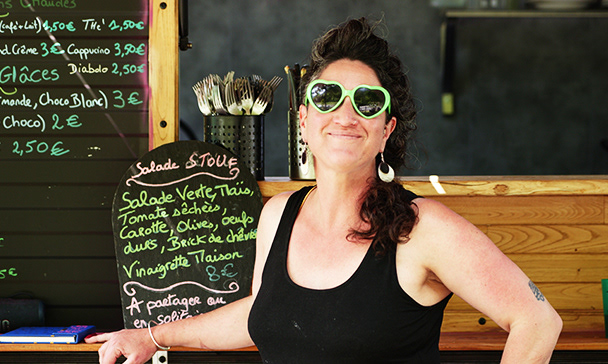 Chaudes
(café+lait) 1,50€ THé 1,50€
Crème 3€ Cappucino 3,50€
Glâces Diabolo 2,50€
Choco Blanc) 3€
Choco) 2€
2,50€
€
Salade ETOILE
Salade Verte, Maïs,
Tomate séchées,
Carotte, Olives, oeufs
durs, Brick de chèvre,
Vinaigrette Maison
8€
A partager ou
en solitaire